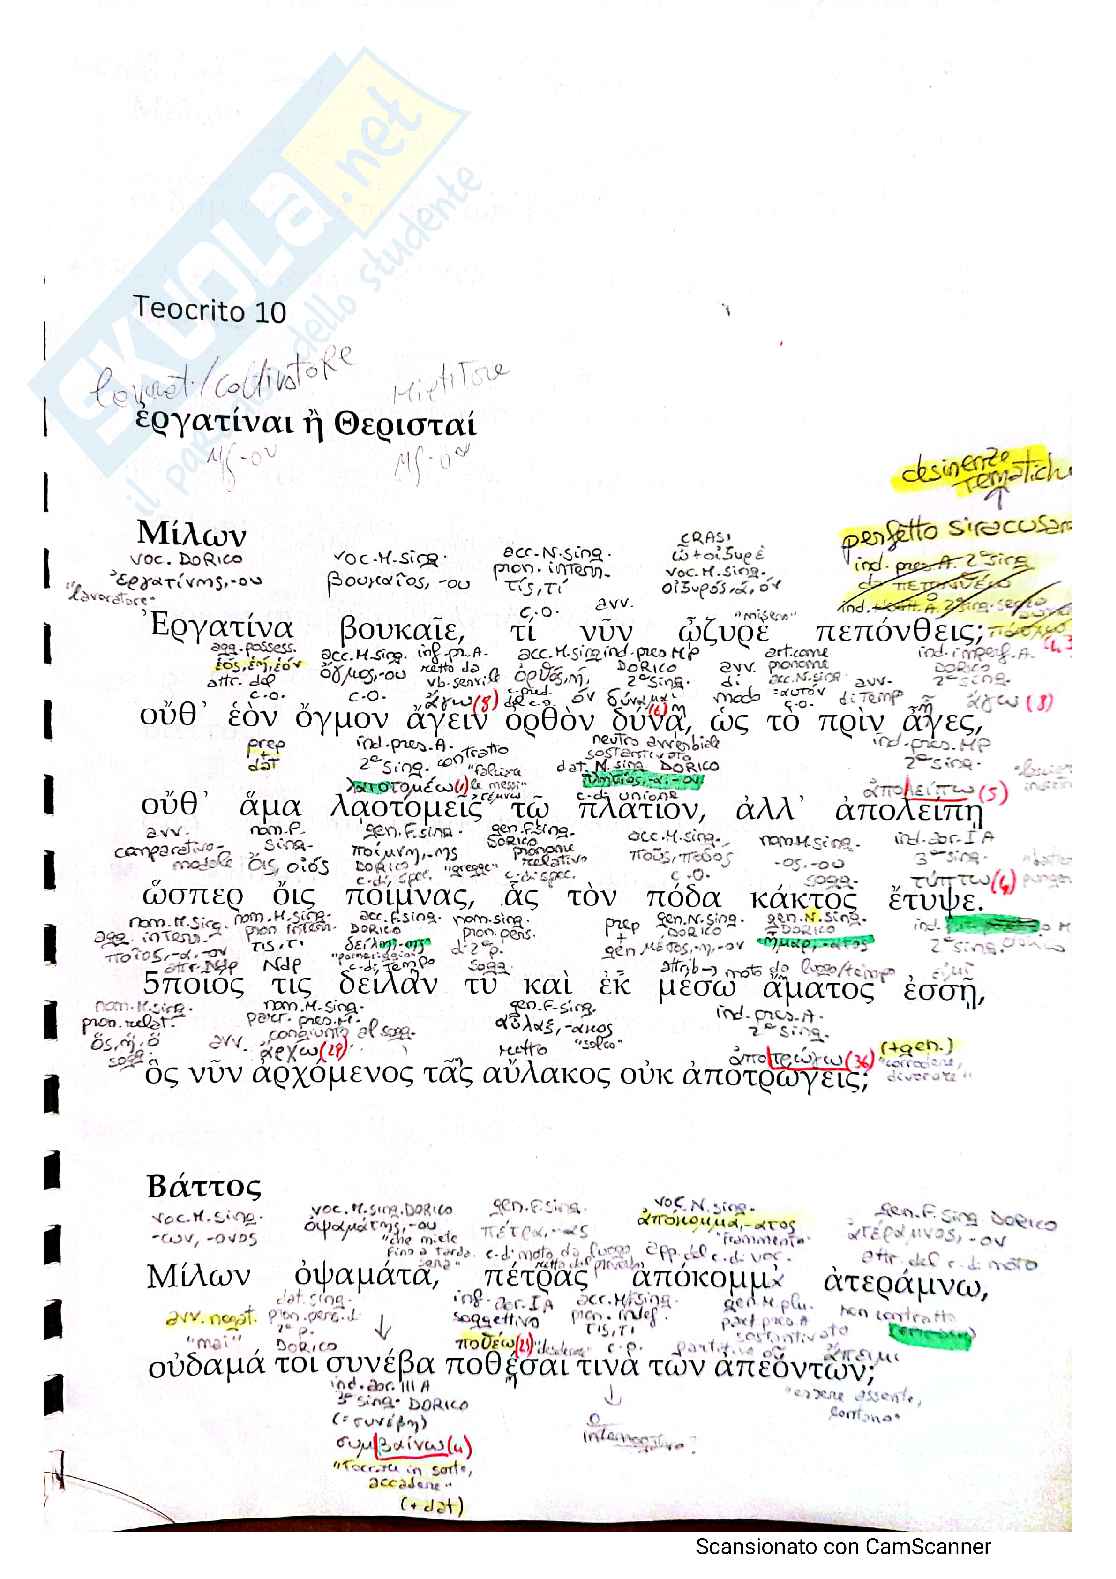 SKUOLA.net
il paradiso dello studente
Teocrito 10
/coltivatore Mietitore
ἐργατίναι ἢ Θερισταί
M/S -ου M/S -ου
desinenze
tematiche
Μίλων
perfetto siracusano
voc. DORICO voc. M. sing. acc. N. sing. CRASI
ἐργατίνης, -ου βουκαῖος, -ου pron. interr. ὦ + οἰζυρέ
"lavoratore" τίς, τί voc. M. sing.
οἰζυρός, ά, όν
c.o. avv. "misero"
Ἐργατίνα βουκαῖε, τί νῦν ᾠζυρὲ πεπόνθεις;
agg. possess. acc. M. sing. inf. pr. A. acc. M. sing. ind. pres MP art. come ind. imperf. A.
ἑός, ἑή, ἑόν ὄγμος, -ου retto da ὀρθός, ή, όν DORICO avv. pronome DORICO
attr. del vb. servile 2ª sing. di acc. N. sing. avv. 2ª sing.
c.o. c.o. ἄγω (8) δύναμαι (6) modo = αὐτόν di temp ἄγω (8)
οὔθ᾽ ἑὸν ὄγμον ἄγειν ὀρθὸν δύνᾳ, ὡς τὸ πρὶν ἆγες,
prep ind. pres. A. neutro avverbiale ind. pres. MP
+ 2ª sing. contratto sostantivato 2ª sing.
dat "falciare dat. N. sing. DORICO
λαοτομέω (1) le messi" πλησίος, -α, -ον ἀπολείπω (5)
c. di unione
οὔθ᾽ ἅμα λαοτομεῖς τῷ πλατίον, ἀλλ᾽ ἀπολείπῃ
avv. nom. F. gen. F. sing. gen. F. sing. acc. M. sing. nom. M. sing. ind. aor. I A
comparativo- sing. ποίμνη, -ης DORICO πούς, ποδός -ος, -ου 3ª sing.
modale ὄις, οἰός DORICO "gregge" pronome relativo c.o. sogg. τύπτω (4)
c. di spec. c. di spec.
ὥσπερ ὄις ποίμνας, ἇς τὸν πόδα κάκτος ἔτυψε.
nom. M. sing. nom. M. sing. acc. F. sing. nom. sing. prep gen. N. sing. gen. N. sing. ind.
agg. interr. pron. interr. DORICO pron. pers. + DORICO 2ª sing.
ποῖος, -α, -ον τις, τι δείλη, -ης di 2ª p. gen. μέσος, -η, -ον ἦμαρ, -ατος
attr. Ndp Ndp "pomeriggio" c. di tempo sogg. attrib → moto da luogo/tempo εἰμί
5ποῖός τις δειλὰν τὺ καὶ ἐκ μέσω ἄματος ἐσσῇ,
nom. M. sing. nom. M. sing. gen. F. sing. ind. pres. A.
pron. relat. part. pres. M. αὖλαξ, -ακος 2ª sing.
ὅς, ἥ, ὅ avv. congiunto al sogg. retto "solco" (+ gen.)
sogg. ἄρχω (29) ἀποτρώγω (36) "corrodere, divorare"
ὃς νῦν ἀρχόμενος τᾶς αὔλακος οὐκ ἀποτρώγεις;
Βάττος
voc. M. sing. voc. M. sing. DORICO gen. F. sing. voc. N. sing. gen. F. sing DORICO
-ων, -ωνος ὀψαμάτης, -ου πέτρα, -ας ἀπόκομμα, -ατος ἀτέραμνος, -ον
"che miete "frammento"
fino a tarda c. di moto da luogo app. del c. di voc. attr. del c. di moto
sera"
Μίλων ὀψαμάτα, πέτρας ἀπόκομμ᾽ ἀτεράμνω,
dat. sing. inf. aor. I A acc. M. sing. gen. M. plu. non contratto
avv. negat. pron. pers. di soggettivo pron. indef. part. pres A
"mai" 2ª p. ποθέω (23) τις, τι sostantivato
DORICO ἄπειμι
οὐδαμά τοι συνέβα ποθέσαι τινὰ τῶν ἀπεόντων;
ind. aor. III A "essere assente,
3ª sing. DORICO lontano"
(= συνέβη) o
συμβαίνω (4) interrogativo?
"toccare in sorte,
accadere"
(+ dat)
Scansionato con CamScanner